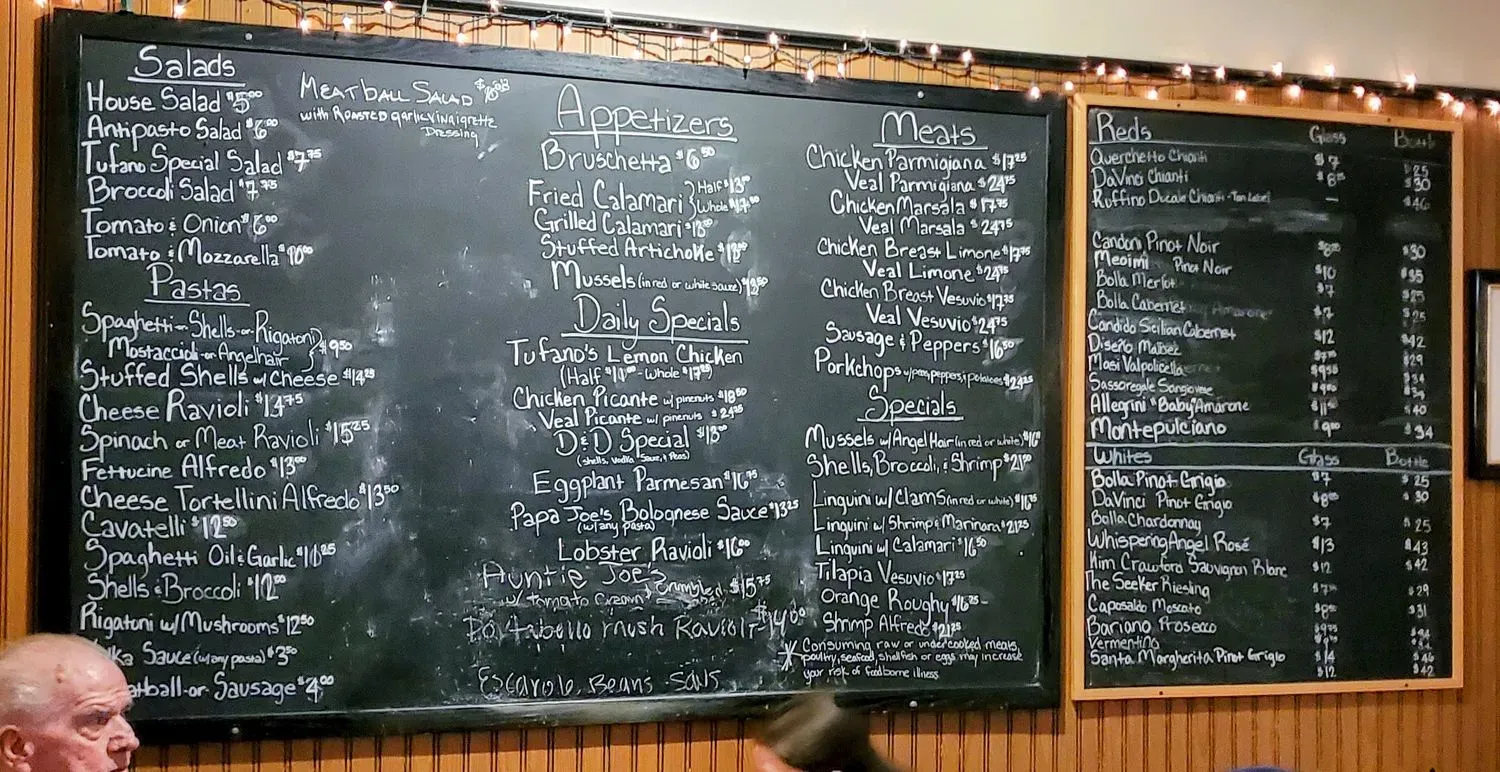 Salads
House Salad $5.00
Antipasto Salad $6.00
Tufano Special Salad $7.75
Broccoli Salad $7.75
Tomato & Onion $6.00
Tomato & Mozzarella $10.00
Meatball Salad
with Roasted garlic Vinaigrette
Dressing
Pastas
Spaghetti-or-Shells-or-Rigatoni
Mostaccioli-or-Angelhair $9.50
Stuffed Shells w/ Cheese $14.25
Cheese Ravioli $14.75
Spinach or Meat Ravioli $15.25
Fettucine Alfredo $13.00
Cheese Tortellini Alfredo $13.50
Cavatelli $12.50
Spaghetti Oil & Garlic
Shells & Broccoli $12.00
Rigatoni w/ Mushrooms $12.50
Sauce (w/ any pasta) $3.50
-or- Sausage $4.00
Appetizers
Bruschetta $6.50
Fried Calamari Half $13.00
Whole
Grilled Calamari
Stuffed Artichoke
Mussels (in red or white sauce)
Daily Specials
Tufano's Lemon Chicken
(Half - Whole)
Chicken Picante w/ pinenuts $18.50
Veal Picante w/ pinenuts
D&D Special $13.00
(shells, vodka sauce, & Peas)
Eggplant Parmesan $16.75
Papa Joe's Bolognese Sauce $13.25
(w/ any pasta)
Lobster Ravioli $16.00
Auntie Joe's
w/ tomato $15.75
Portabello mush Ravioli
Escarole, Beans
Meats
Chicken Parmigiana $17.25
Veal Parmigiana $24.75
Chicken Marsala $17.75
Veal Marsala $24.75
Chicken Breast Limone $17.75
Veal Limone $24.75
Chicken Breast Vesuvio $17.75
Veal Vesuvio $24.75
Sausage & Peppers $16.50
Porkchops w/ peas, peppers, & potatoes
Specials
Mussels w/ Angel Hair (in red or white)
Shells, Broccoli, & Shrimp
Linguini w/ Clams (in red or white)
Linguini w/ Shrimp & Marinara $21.25
Linguini w/ Calamari $16.50
Tilapia Vesuvio $17.25
Orange Roughy $16.25
Shrimp Alfredo $21.25
* Consuming raw or undercooked meats,
poultry, seafood, shellfish or eggs may increase
your risk of foodborne illness
Reds Glass
Querchetto Chianti $7 $25
DaVinci Chianti $30
Ruffino Ducale Chianti - Tan Label — $46
Candoni Pinot Noir $30
Meoimi Pinot Noir $10 $35
Bolla Merlot $7 $25
Bolla Cabernet $7 $25
Candido Sicilian Cabernet $12 $42
Diseño Malbec $29
Masi Valpolicella
Sassoregale Sangiovese
Allegrini "Baby" Amarone $40
Montepulciano $9.00 $34
Whites Glass Bottle
Bolla Pinot Grigio $7 $25
DaVinci Pinot Grigio $30
Bolla Chardonnay $7 $25
Whispering Angel Rosé $13 $43
Kim Crawford Sauvignon Blanc $12 $42
The Seeker Riesling $29
Caposaldo Moscato $31
Bariano Prosecco
Vermentino
Santa Margherita Pinot Grigio $14
$12 $42